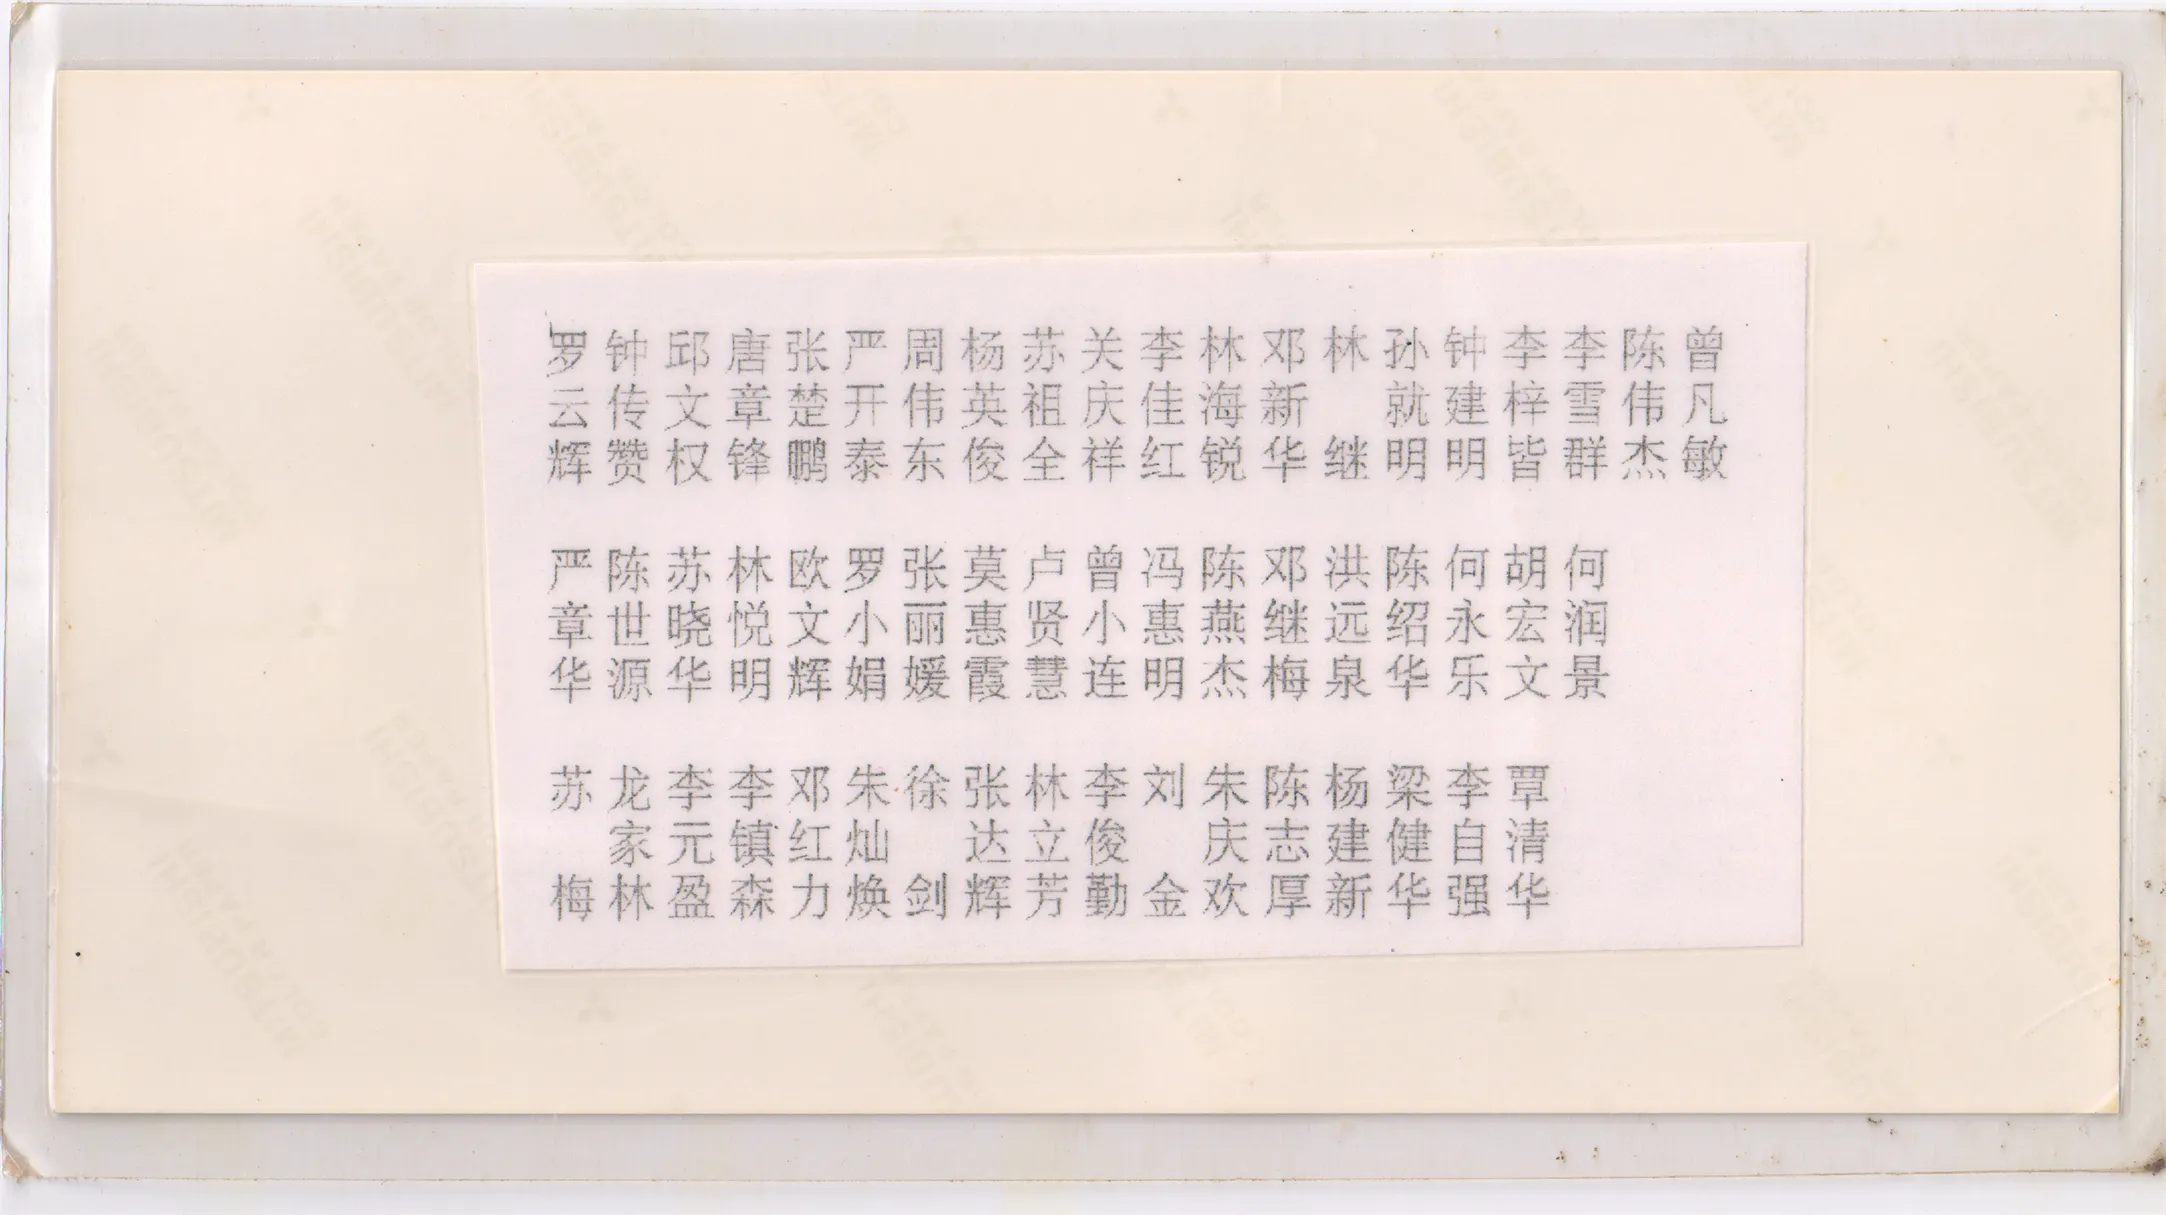 罗云辉
钟传赞
邱文权
唐章锋
张楚鹏
严开泰
周伟东
杨英俊
苏祖全
关庆祥
李佳红
林海锐
邓新华
林继
孙就明
钟建明
李梓皆
李雪群
陈伟杰
曾凡敏
严章华
陈世源
苏晓华
林悦明
欧文辉
罗小娟
张丽媛
莫惠霞
卢贤慧
曾小连
冯惠明
陈燕杰
邓继梅
洪远泉
陈绍华
何永乐
胡宏文
何润景
苏梅
龙家林
李元盈
李镇森
邓红力
朱灿焕
徐剑
张达辉
林立芳
李俊勤
刘金
朱庆欢
陈志厚
杨建新
梁健华
李自强
覃清华